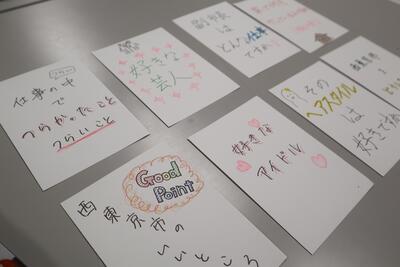 仕事の中
で
つらかったこと
つらいこと
好きな
芸人
副市長
は
どんな仕事
ですか?
その
ヘアスタイル
は
好きですか
好きな
アイドル
Good
Point
西東京市の
いいところ